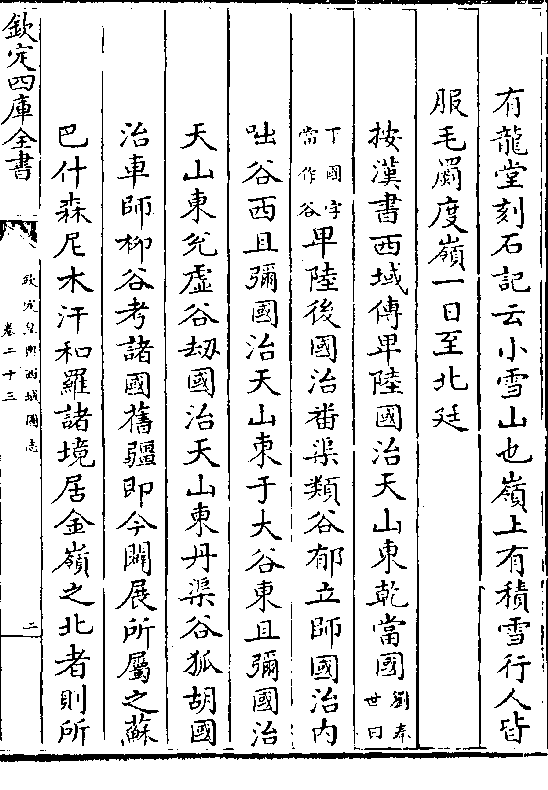 有龍堂刻石記云小雪山也嶺上有積雪行人皆
服毛罽度嶺一日至北廷
按漢書西域傳卑陸國治天山東乾當國劉奉世曰
下國字當作谷卑陸後國治番渠類谷郁立師國治内
咄谷西且彌國治天山東于大谷東且彌國治
天山東兊虛谷劫國治天山東丹渠谷狐胡國
治車師柳谷考諸國舊疆即今闢展所屬之蘇
巴什森尼木汗和羅諸境居金嶺之北者則所
欽定四庫全書
欽定皇輿西域圖志
卷二十三
二